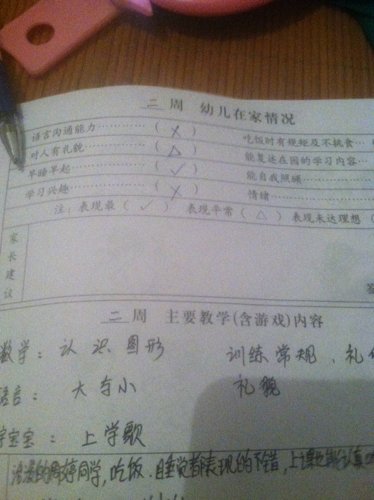 二 周 幼儿在家情况
语言沟通能力………( × ) 吃饭时有规矩及不挑食…
对人有礼貌…………( △ ) 能复述在园的学习内容…
早睡早起……………( ✓ ) 能自我照顾………
学习兴趣……………( × ) 情绪………
注：表现最( ✓ ) 表现平常( △ ) 表现未达理想(
家长建议
二 周 主要教学(含游戏)内容
数学：认识图形 训练常规、礼
语言：大与小 礼貌
宝宝：上学歌
同学,吃饭、睡觉都表现的不错,上课